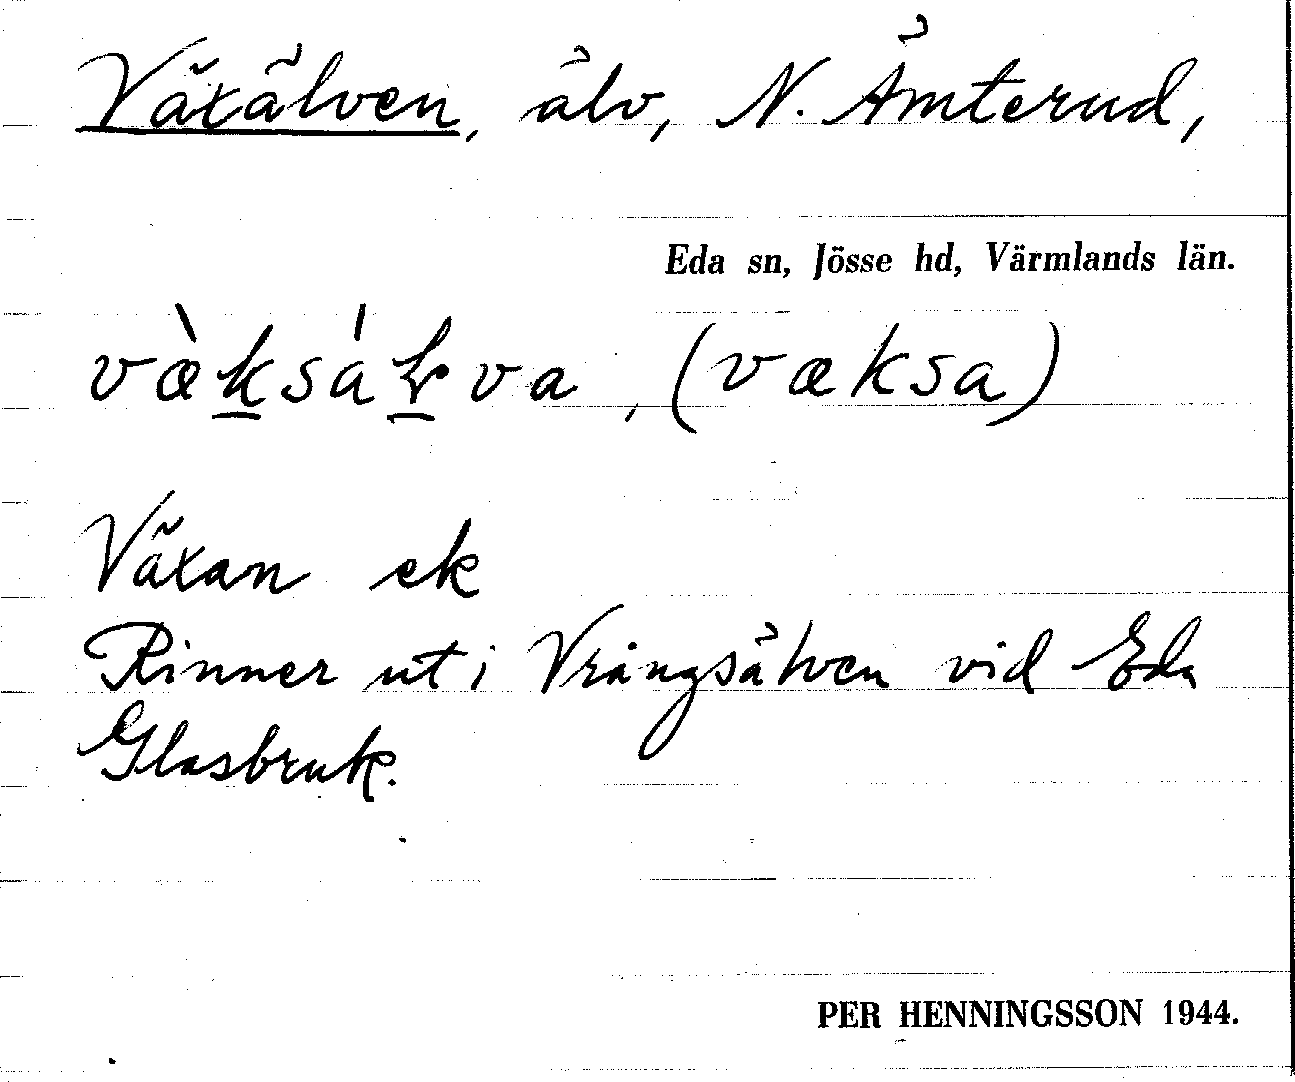 Växälven, älv, N. Ämterud,
Eda sn, Jösse hd, Värmlands län.
væ̀ksáɽva, (væksa)
Växan ek
Rinner ut i Vrångsälven vid Eda
Glasbruk.
PER HENNINGSSON 1944.